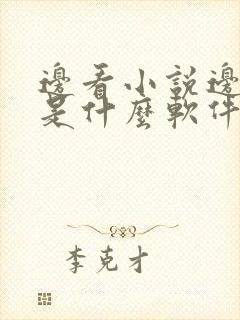 邊看小說邊
是什麼軟件
李克才